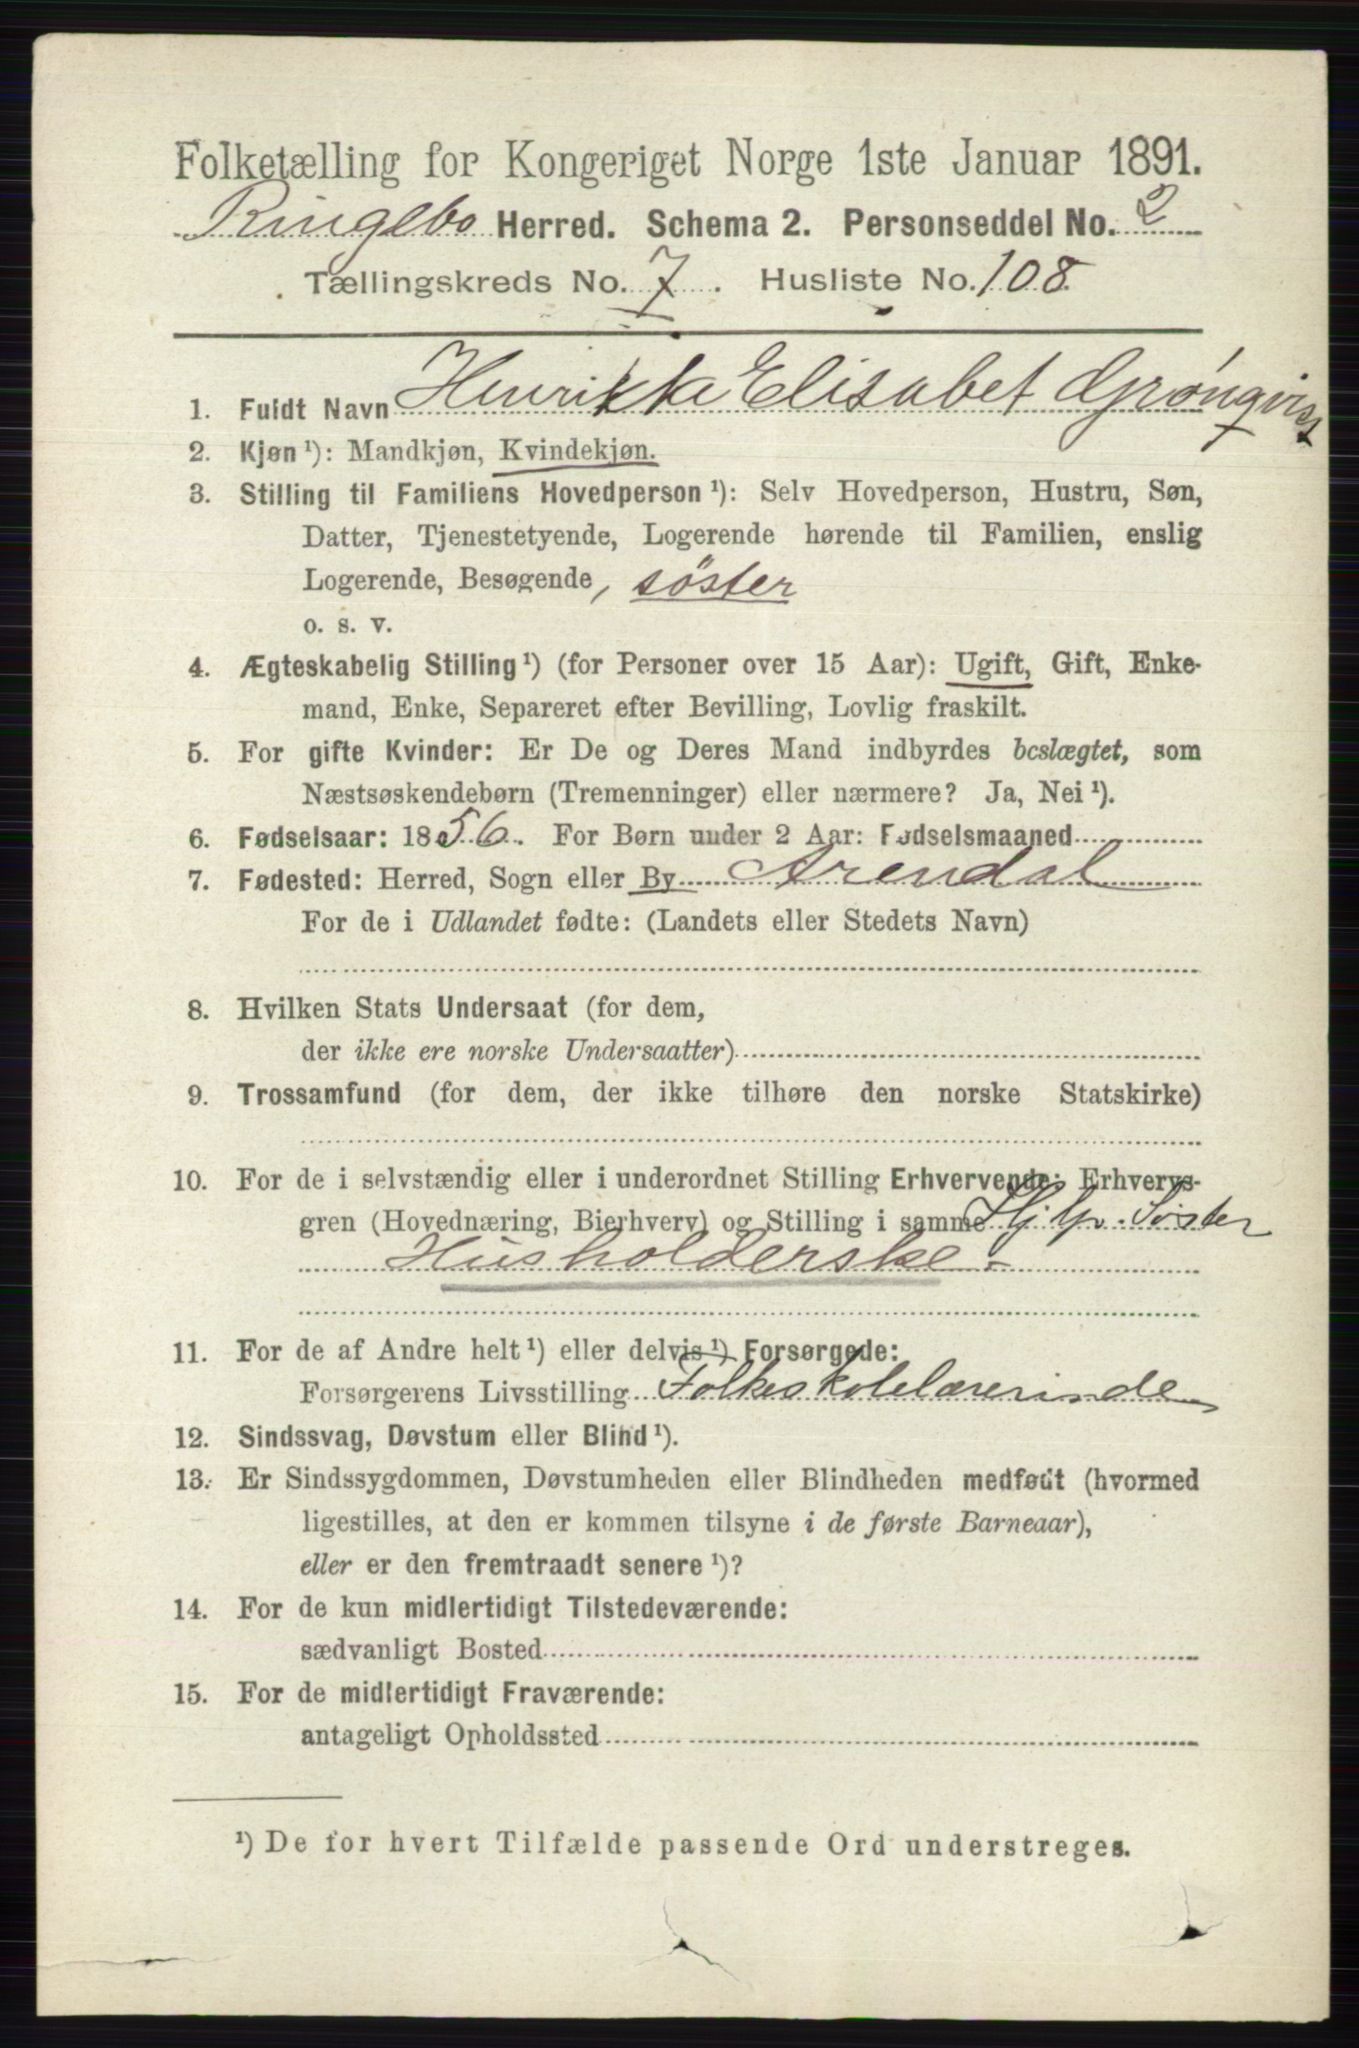 Folketælling for Kongeriget Norge 1ste Januar 1891.
Ringebo Herred. Schema 2. Personseddel No. 2
Tællingskreds No. 7. Husliste No. 108.
1. Fuldt Navn Henrikke Elisabet Grönqvist
2. Kjøn ¹): Mandkjøn, Kvindekjøn.
3. Stilling til Familiens Hovedperson ¹): Selv Hovedperson, Hustru, Søn,
Datter, Tjenestetyende, Logerende hørende til Familien, enslig
Logerende, Besøgende, söster
o. s. v.
4. Ægteskabelig Stilling ¹) (for Personer over 15 Aar): Ugift, Gift, Enke-
mand, Enke, Separeret efter Bevilling, Lovlig fraskilt.
5. For gifte Kvinder: Er De og Deres Mand indbyrdes beslægtet, som
Næstsøskendebørn (Tremenninger) eller nærmere? Ja, Nei ¹).
6. Fødselsaar: 1856. For Børn under 2 Aar: Fødselsmaaned
7. Fødested: Herred, Sogn eller By Arendal
For de i Udlandet fødte: (Landets eller Stedets Navn)
8. Hvilken Stats Undersaat (for dem,
der ikke ere norske Undersaatter)
9. Trossamfund (for dem, der ikke tilhøre den norske Statskirke)
10. For de i selvstændig eller i underordnet Stilling Erhvervende: Erhvervs-
gren (Hovednæring, Bierhverv) og Stilling i samme Hjlp. Söster
Husholderske.
11. For de af Andre helt ¹) eller delvis ¹) Forsørgede:
Forsørgerens Livsstilling Folkeskolelærerinde
12. Sindssvag, Døvstum eller Blind ¹).
13. Er Sindssygdommen, Døvstumheden eller Blindheden medfødt (hvormed
ligestilles, at den er kommen tilsyne i de første Barneaar),
eller er den fremtraadt senere ¹)?
14. For de kun midlertidigt Tilstedeværende:
sædvanligt Bosted
15. For de midlertidigt Fraværende:
antageligt Opholdssted
¹) De for hvert Tilfælde passende Ord understreges.